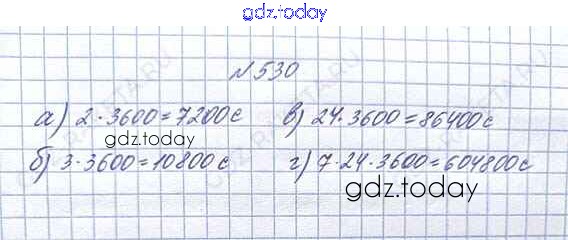 gdz.today
№530
а) 2·3600=7200с в) 24·3600=86400с
gdz.today
б) 3·3600=10800с г) 7·24·3600=604800с
gdz.today